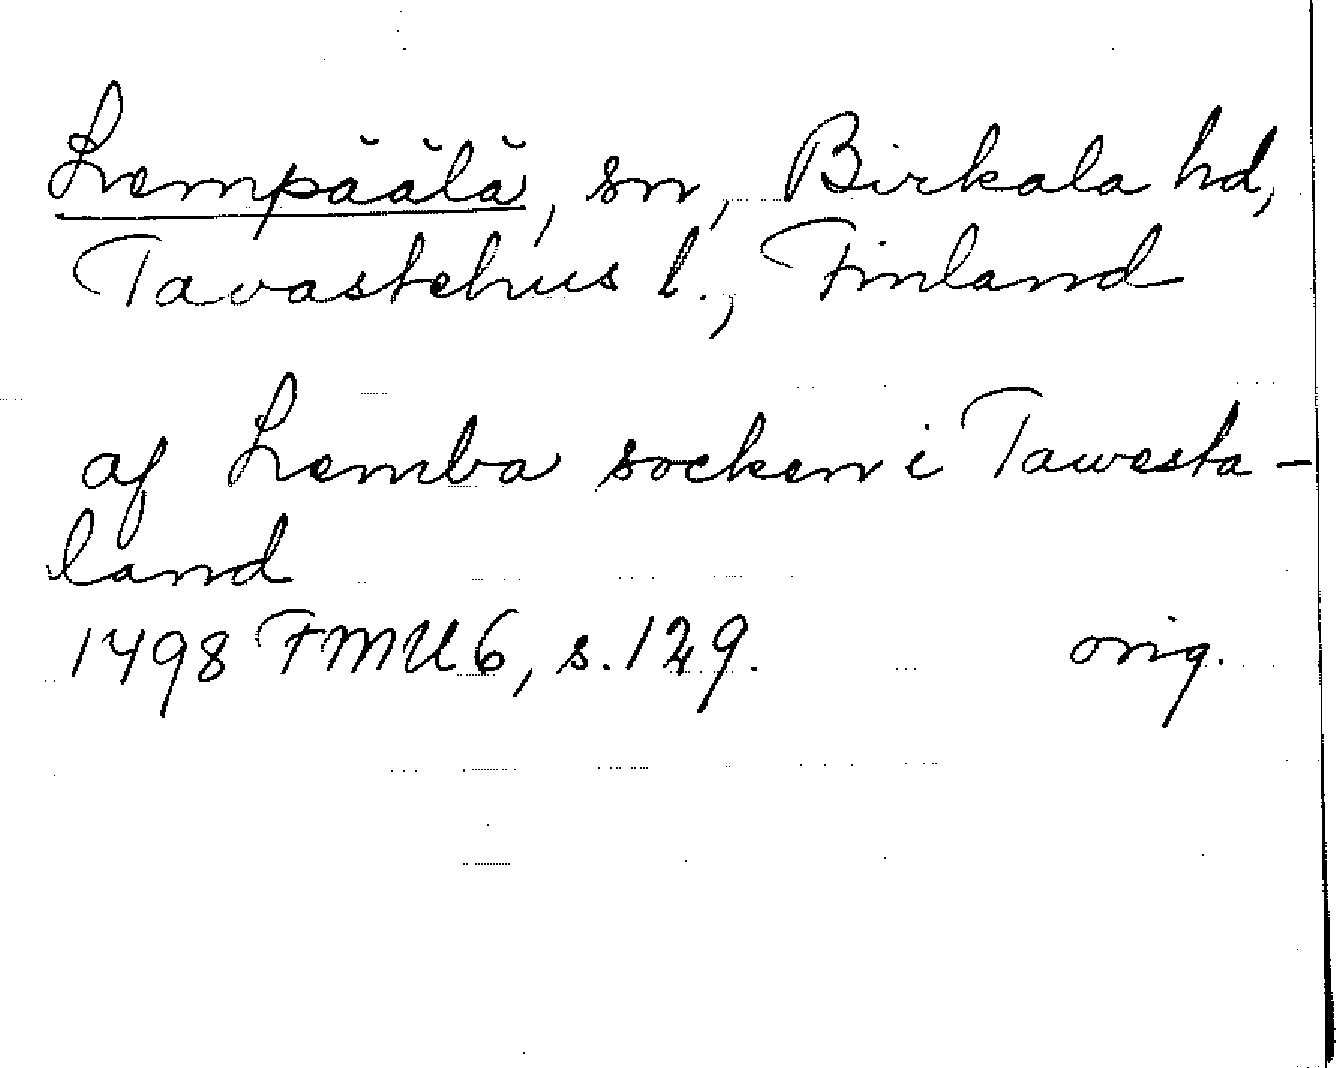 Lempäälä, sn, Birkala hd,
Tavastehus l., Finland
af Lemba socken i Tawesta-
land
1498 FMU 6, s. 129. orig.